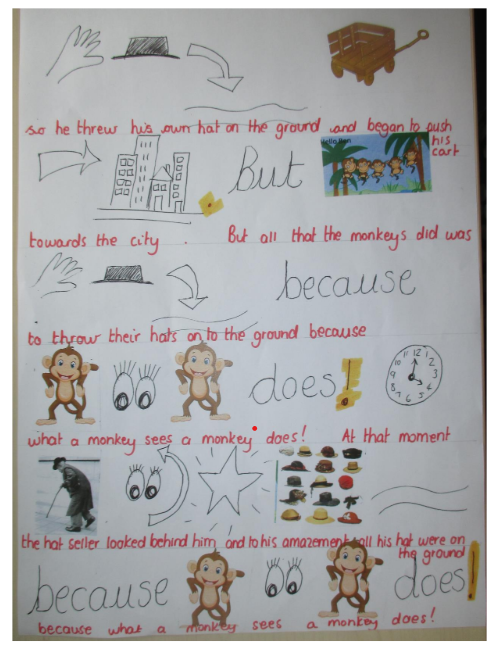 so he threw his own hat on the ground and began to push
his
cart
But
towards the city . But all that the monkeys did was
because
to throw their hats on to the ground because
does!
what a monkey sees a monkey does! At that moment
the hat seller looked behind him and to his amazement all his hat were on
the ground
because does!
because what a monkey sees a monkey does!